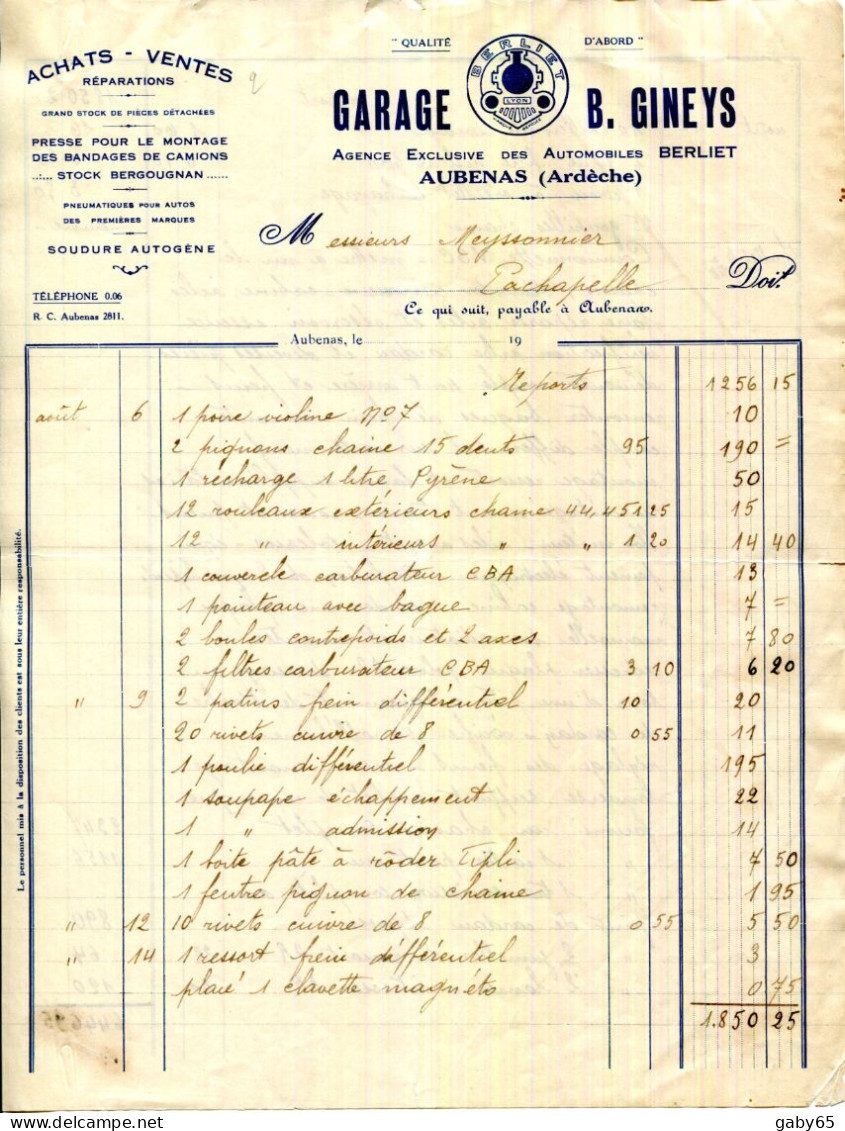 " QUALITÉ D'ABORD "
BERLIET
LYON
ACHATS - VENTES
RÉPARATIONS
GRAND STOCK DE PIÈCES DÉTACHÉES
PRESSE POUR LE MONTAGE
DES BANDAGES DE CAMIONS
..:... STOCK BERGOUGNAN ......
PNEUMATIQUES POUR AUTOS
DES PREMIÈRES MARQUES
SOUDURE AUTOGÈNE
TÉLÉPHONE 0.06
R. C. Aubenas 2811.
GARAGE B. GINEYS
AGENCE EXCLUSIVE DES AUTOMOBILES BERLIET
AUBENAS (Ardèche)
Messieurs Meyssonnier
Lachapelle Doit
Ce qui suit, payable à Aubenas.
Aubenas, le 19
Reports 1256 15
août 6 1 poire violine No 7 10
2 pignons chaine 15 dents 95 190 =
1 recharge 1 litre Pyrène 50
12 rouleaux extérieurs chaine 44,45 1 25 15
12 " intérieurs " " 1 20 14 40
1 couvercle carburateur CBA 13
1 pointeau avec bague 7 =
2 boules contrepoids et 2 axes 7 80
2 filtres carburateur CBA 3 10 6 20
" 9 2 patins frein différentiel 10 20
20 rivets cuivre de 8 0 55 11
1 poulie différentiel 195
1 soupape échappement 22
1 " admission 14
1 boite pâte à rôder Tipli 7 50
1 feutre pignon de chaine 1 95
" 12 10 rivets cuivre de 8 0 55 5 50
" 14 1 ressort frein différentiel 3
placé 1 clavette magnéto 0 75
1.850 25
Le personnel mis à la disposition des clients est sous leur entière responsabilité.
gaby65